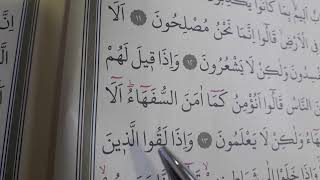 اَلٖيمٌ بِمَا كَانُوا
فِي الْاَرْضِ قَالُٓوا اِنَّمَا نَحْنُ مُصْلِحُونَ ١١ اَلَٓا
فْسِدُونَ وَلٰكِنْ لَا يَشْعُرُونَ ١٢ وَاِذَا قٖيلَ لَهُمْ
النَّاسُ قَالُٓوا اَنُؤْمِنُ كَمَٓا اٰمَنَ السُّفَهَٓاءُ اَلَٓا
هَٓاءُ وَلٰكِنْ لَا يَعْلَمُونَ ١٣ وَاِذَا لَقُوا الَّذٖينَ